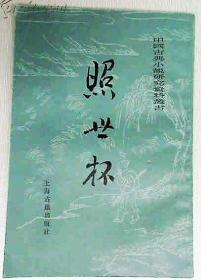 中國古典小說研究資料叢書
照世杯
上海古籍出版社